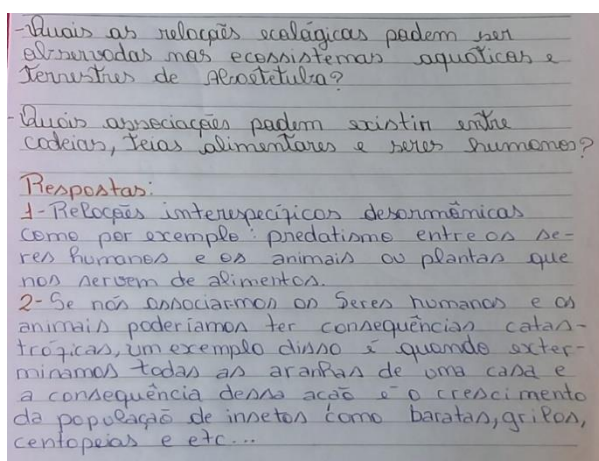 -Quais as relações ecológicas podem ser
observadas nas ecossistemas aquáticos e
terrestres de Alcatetuba?
-Quais associações podem existir entre
cadeias, teias alimentares e seres humanos?
Respostas:
1-Relações interespecíficas desarmônicas
como por exemplo: predatismo entre os se-
res humanos e os animais ou plantas que
nos servem de alimentos.
2-Se nós associarmos os Seres humanos e os
animais poderíamos ter consequências catas-
tróficas, um exemplo disso é quando exter-
minamos todas as aranhas de uma casa e
a consequência dessa acão é o crescimento
da população de insetos como baratas, grilos,
centopeias e etc...